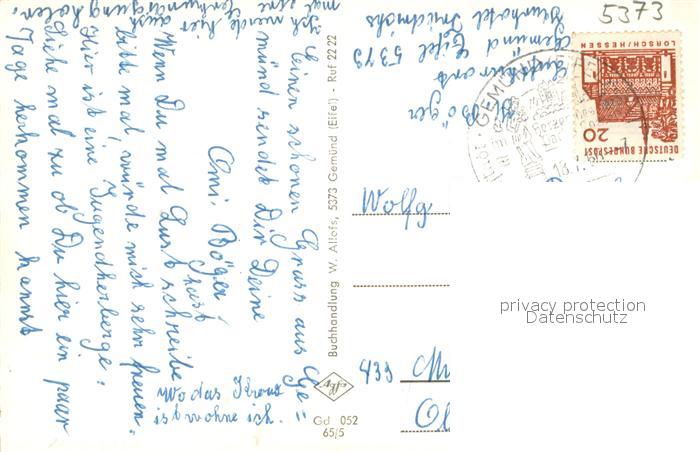 Einen schönen Gruss aus Ge=
münd sendet Dir Deine
Omi. Böger
Wenn Du mal Lust hast
schreibe
bitte mal, würde mich sehr freuen.
Hier ist eine Jugendherberge.
Siehe mal zu ob Du hier ein paar
Tage herkommen kannst
Ich werde hier auch
mal eine
holen.
Wo das Kreuz
ist wohne ich.
Buchhandlung W. Allofs, 5373 Gemünd (Eifel) - Ruf 22 22
Gd 052
65/5
Böger
Luftkurort
Gemünd Eifel 5373
Kurhotel
5373
GEMÜND
DEUTSCHE BUNDESPOST
20
LORSCH/HESSEN
Wolfg
433
privacy protection
Datenschutz